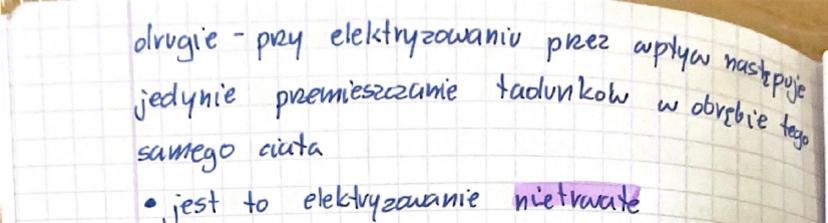 drugie - przy elektryzowaniu przez wpływ następuje
jedynie przemieszczanie ładunków w obrębie tego
samego ciała
• jest to elektryzowanie nietrwałe